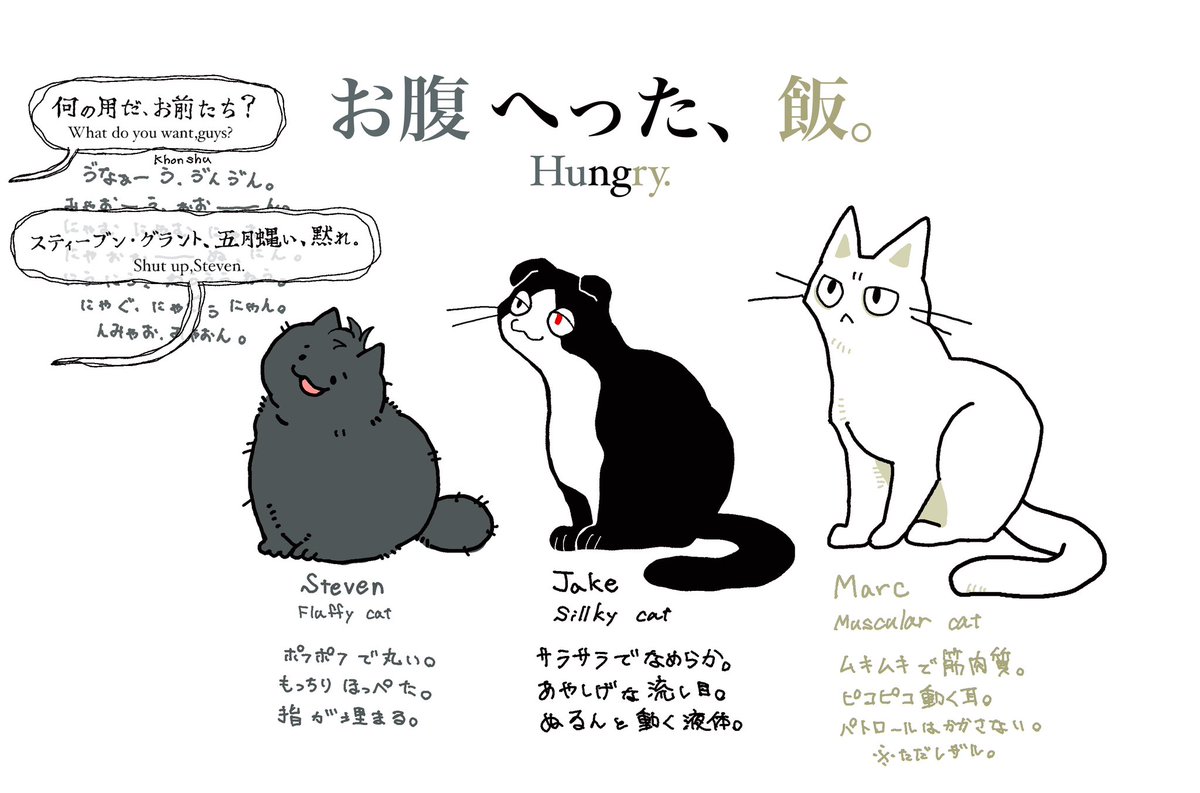 お腹へった、飯。
Hungry.
何の用だ、お前たち？
What do you want,guys?
Khonshu
ゔなぁーう、ゔんゔん。
スティーブン・グラント、五月蝿い、黙れ。
Shut up,Steven.
んみゃお、みゃおん。
Steven
Fluffy cat
ポフポフで丸い。
もっちりほっぺた。
指が埋まる。
Jake
Sillky cat
サラサラでなめらか。
あやしげな流し目。
ぬるんと動く液体。
Marc
Muscular cat
ムキムキで筋肉質。
ピコピコ動く耳。
パトロールはかかさない。
※ただしザル。